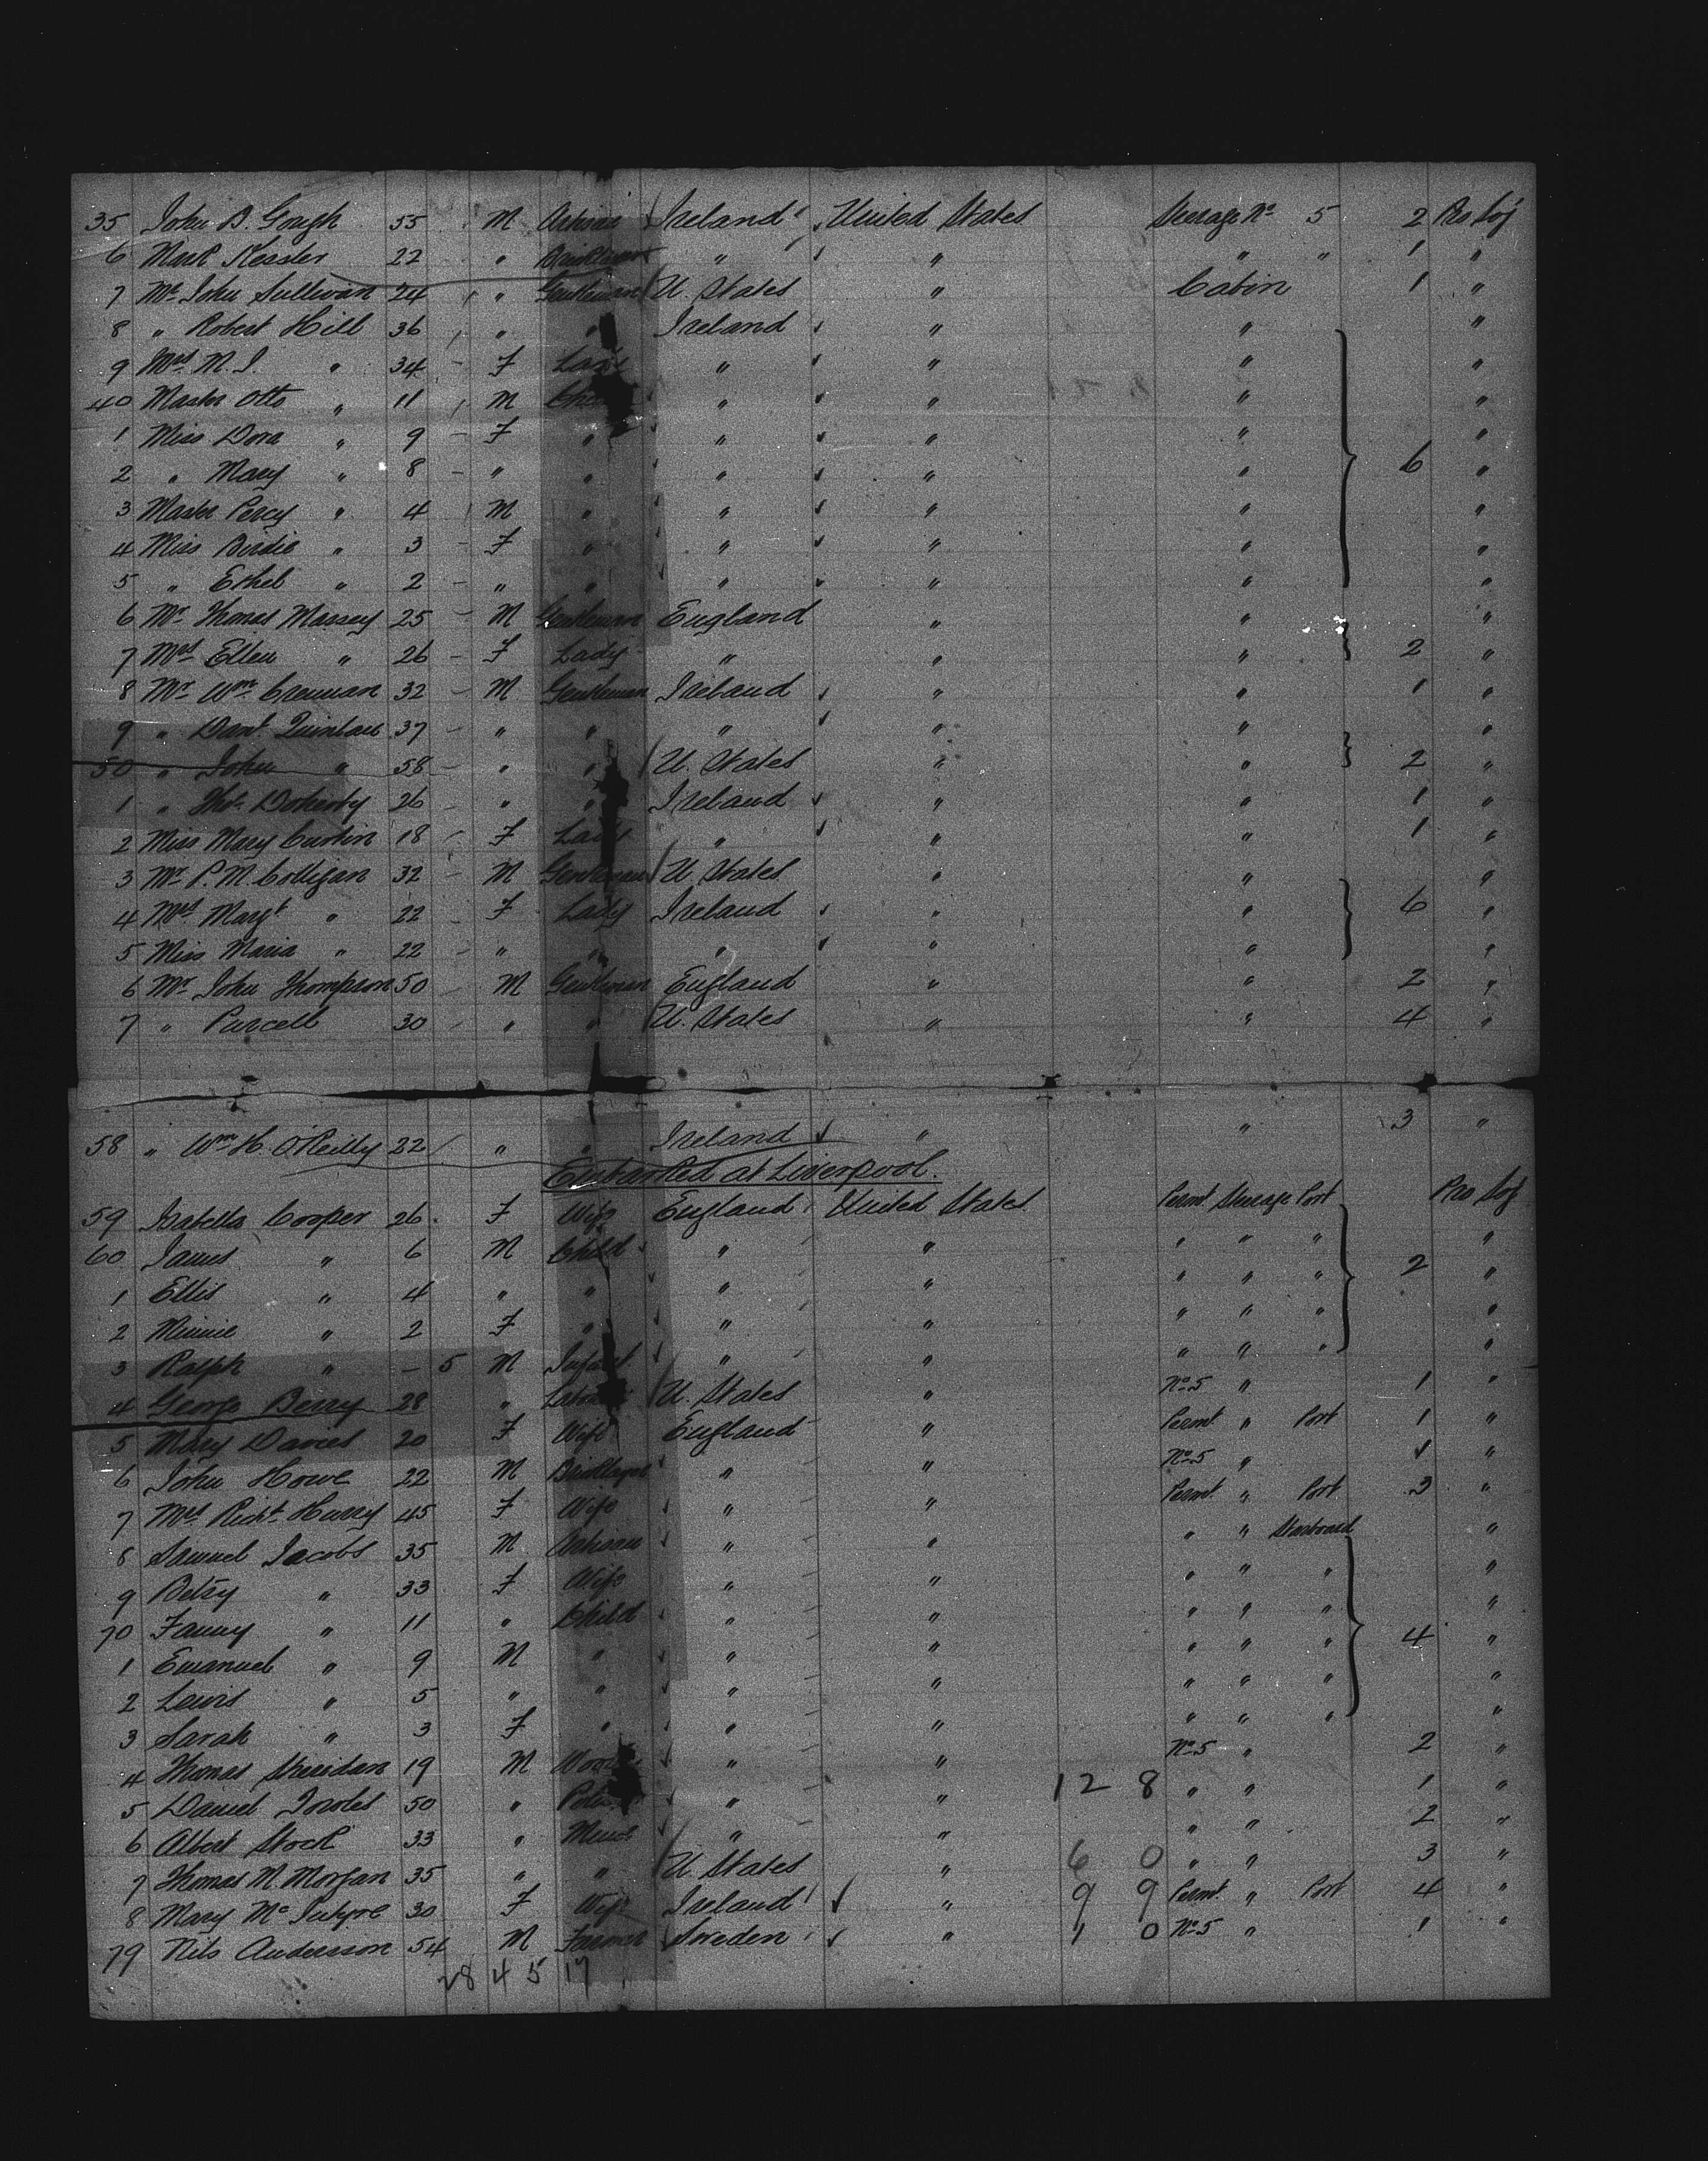 35 John B. Gough 55 M Artisan Ireland United States Steerage No 5 2 Pro Soj
6 Mark Kessler 22 " Bricklayer " " " " 1 "
7 Mr John Sullivan 24 " Gentleman U. States " Cabin 1 "
8 " Robert Hill 36 " " Ireland " " "
9 Mrs M. J. " 34 F Lady " " " "
40 Master Otto " 11 M Child " " " "
1 Miss Dora " 9 F " " " " "
2 " Mary " 8 " " " " " 6 "
3 Master Percy " 4 M " " " " "
4 Miss Birdie " 3 F " " " " "
5 " Ethel " 2 " " " " " "
6 Mr Thomas Massey 25 M Gentleman England " " "
7 Mrs Ellen " 26 F Lady " " " 2 "
8 Mr Wm Crennan 32 M Gentleman Ireland " " 1 "
9 " Danl Quinlan 37 " " " " " "
50 " John " 58 " " U. States " " 2 "
1 " Thos Doherty 26 " " Ireland " " 1 "
2 Miss Mary Curtin 18 F Lady " " " 1 "
3 Mr P. M. Colligan 32 M Gentleman U. States " " "
4 Mrs Margt " 22 F Lady Ireland " " 6 "
5 Miss Maria " 22 " " " " " "
6 Mr John Thompson 50 M Gentleman England " " 2 "
7 " Purcell 30 " " U. States " " 4 "
58 " Wm H. O'Reilly 22 " " Ireland " " 3 "
Embarked at Liverpool.
59 Isabella Cooper 26 F Wife England United States Permt Steerage Port Pro Soj
60 James " 6 M Child " " " " " "
1 Ellis " 4 " " " " " " " 2 "
2 Minnie " 2 F " " " " " " "
3 Ralph " - 5 M Infant " " " " " "
4 George Berry 28 " Laborer U. States " No 5 " 1 "
5 Mary Davies 20 F Wife England " Permt " Port 1 "
6 John Howe 22 M Bricklayer " " No 5 " 1 "
7 Mrs Richt Harry 45 F Wife " " Permt " Port 3 "
8 Samuel Jacobs 35 M Artisan " " " " Starboard "
9 Betsy " 33 F Wife " " " " " "
70 Fanny " 11 " Child " " " " " "
1 Emanuel " 9 M " " " " " " 4 "
2 Lewis " 5 " " " " " " " "
3 Sarah " 3 F " " " " " " "
4 Thomas Sheridan 19 M " " No 5 " 2 "
5 Daniel 50 " " " 12 8 " " 1 "
6 Albert Stock 33 " " " " " 2 "
7 Thomas M Morgan 35 " " U States " 6 0 " " 3 "
8 Mary McIntyre 30 F Wife Ireland " 9 9 Permt " Port 4 "
79 Nils Andersson 54 M Farmer Sweden " 1 0 No 5 " 1 "
28 4 5 17